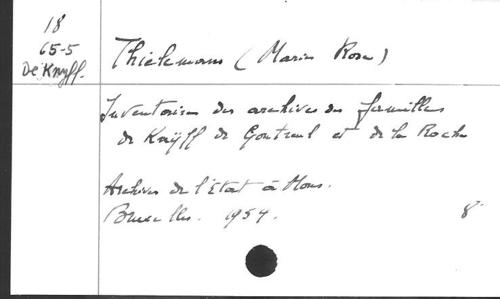 18
65-5
De Knyff.
Thielemans (Marie Rose)
Inventaires des archives des familles
de Knÿff de Gontreul et de la Roche
Archives de l'Etat à Mons.
Bruxelles. 1954. 8°